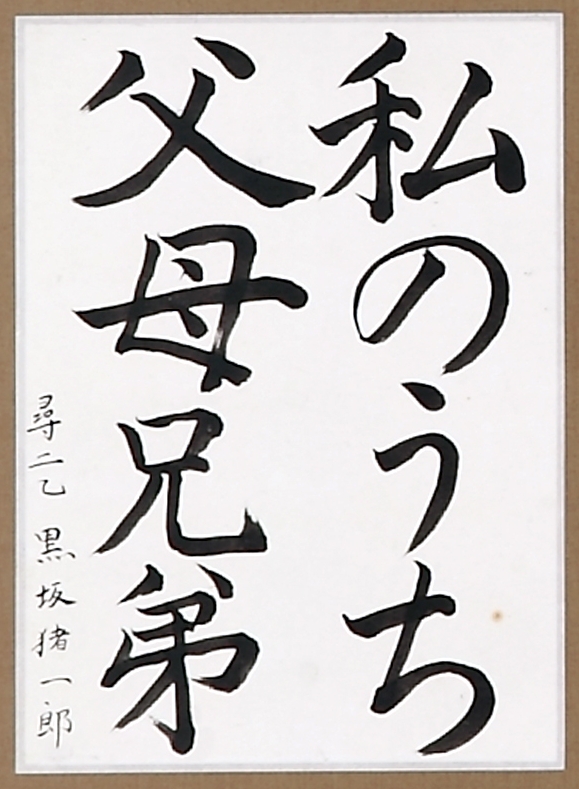 私のうち
父母兄弟
尋二乙 黒坂猪一郎